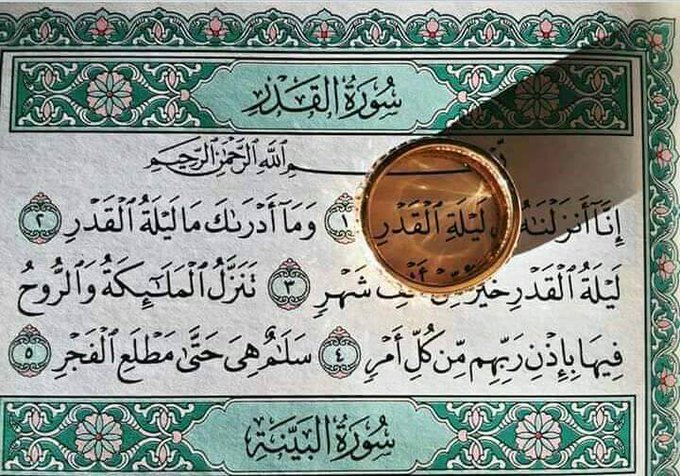 سُورَةُ القَدْرِ
بِسْمِ اللَّهِ الرَّحْمَٰنِ الرَّحِيمِ
إِنَّآ أَنزَلْنَٰهُ لَيْلَةِ ٱلْقَدْرِ ١ وَمَآ أَدْرَىٰكَ مَا لَيْلَةُ ٱلْقَدْرِ ٢
لَيْلَةُ ٱلْقَدْرِ خَيْرٌ مِّنْ أَلْفِ شَهْرٍ ٣ تَنَزَّلُ ٱلْمَلَٰٓئِكَةُ وَٱلرُّوحُ
فِيهَا بِإِذْنِ رَبِّهِم مِّن كُلِّ أَمْرٍ ٤ سَلَٰمٌ هِىَ حَتَّىٰ مَطْلَعِ ٱلْفَجْرِ ٥
سُورَةُ البَيِّنَةِ